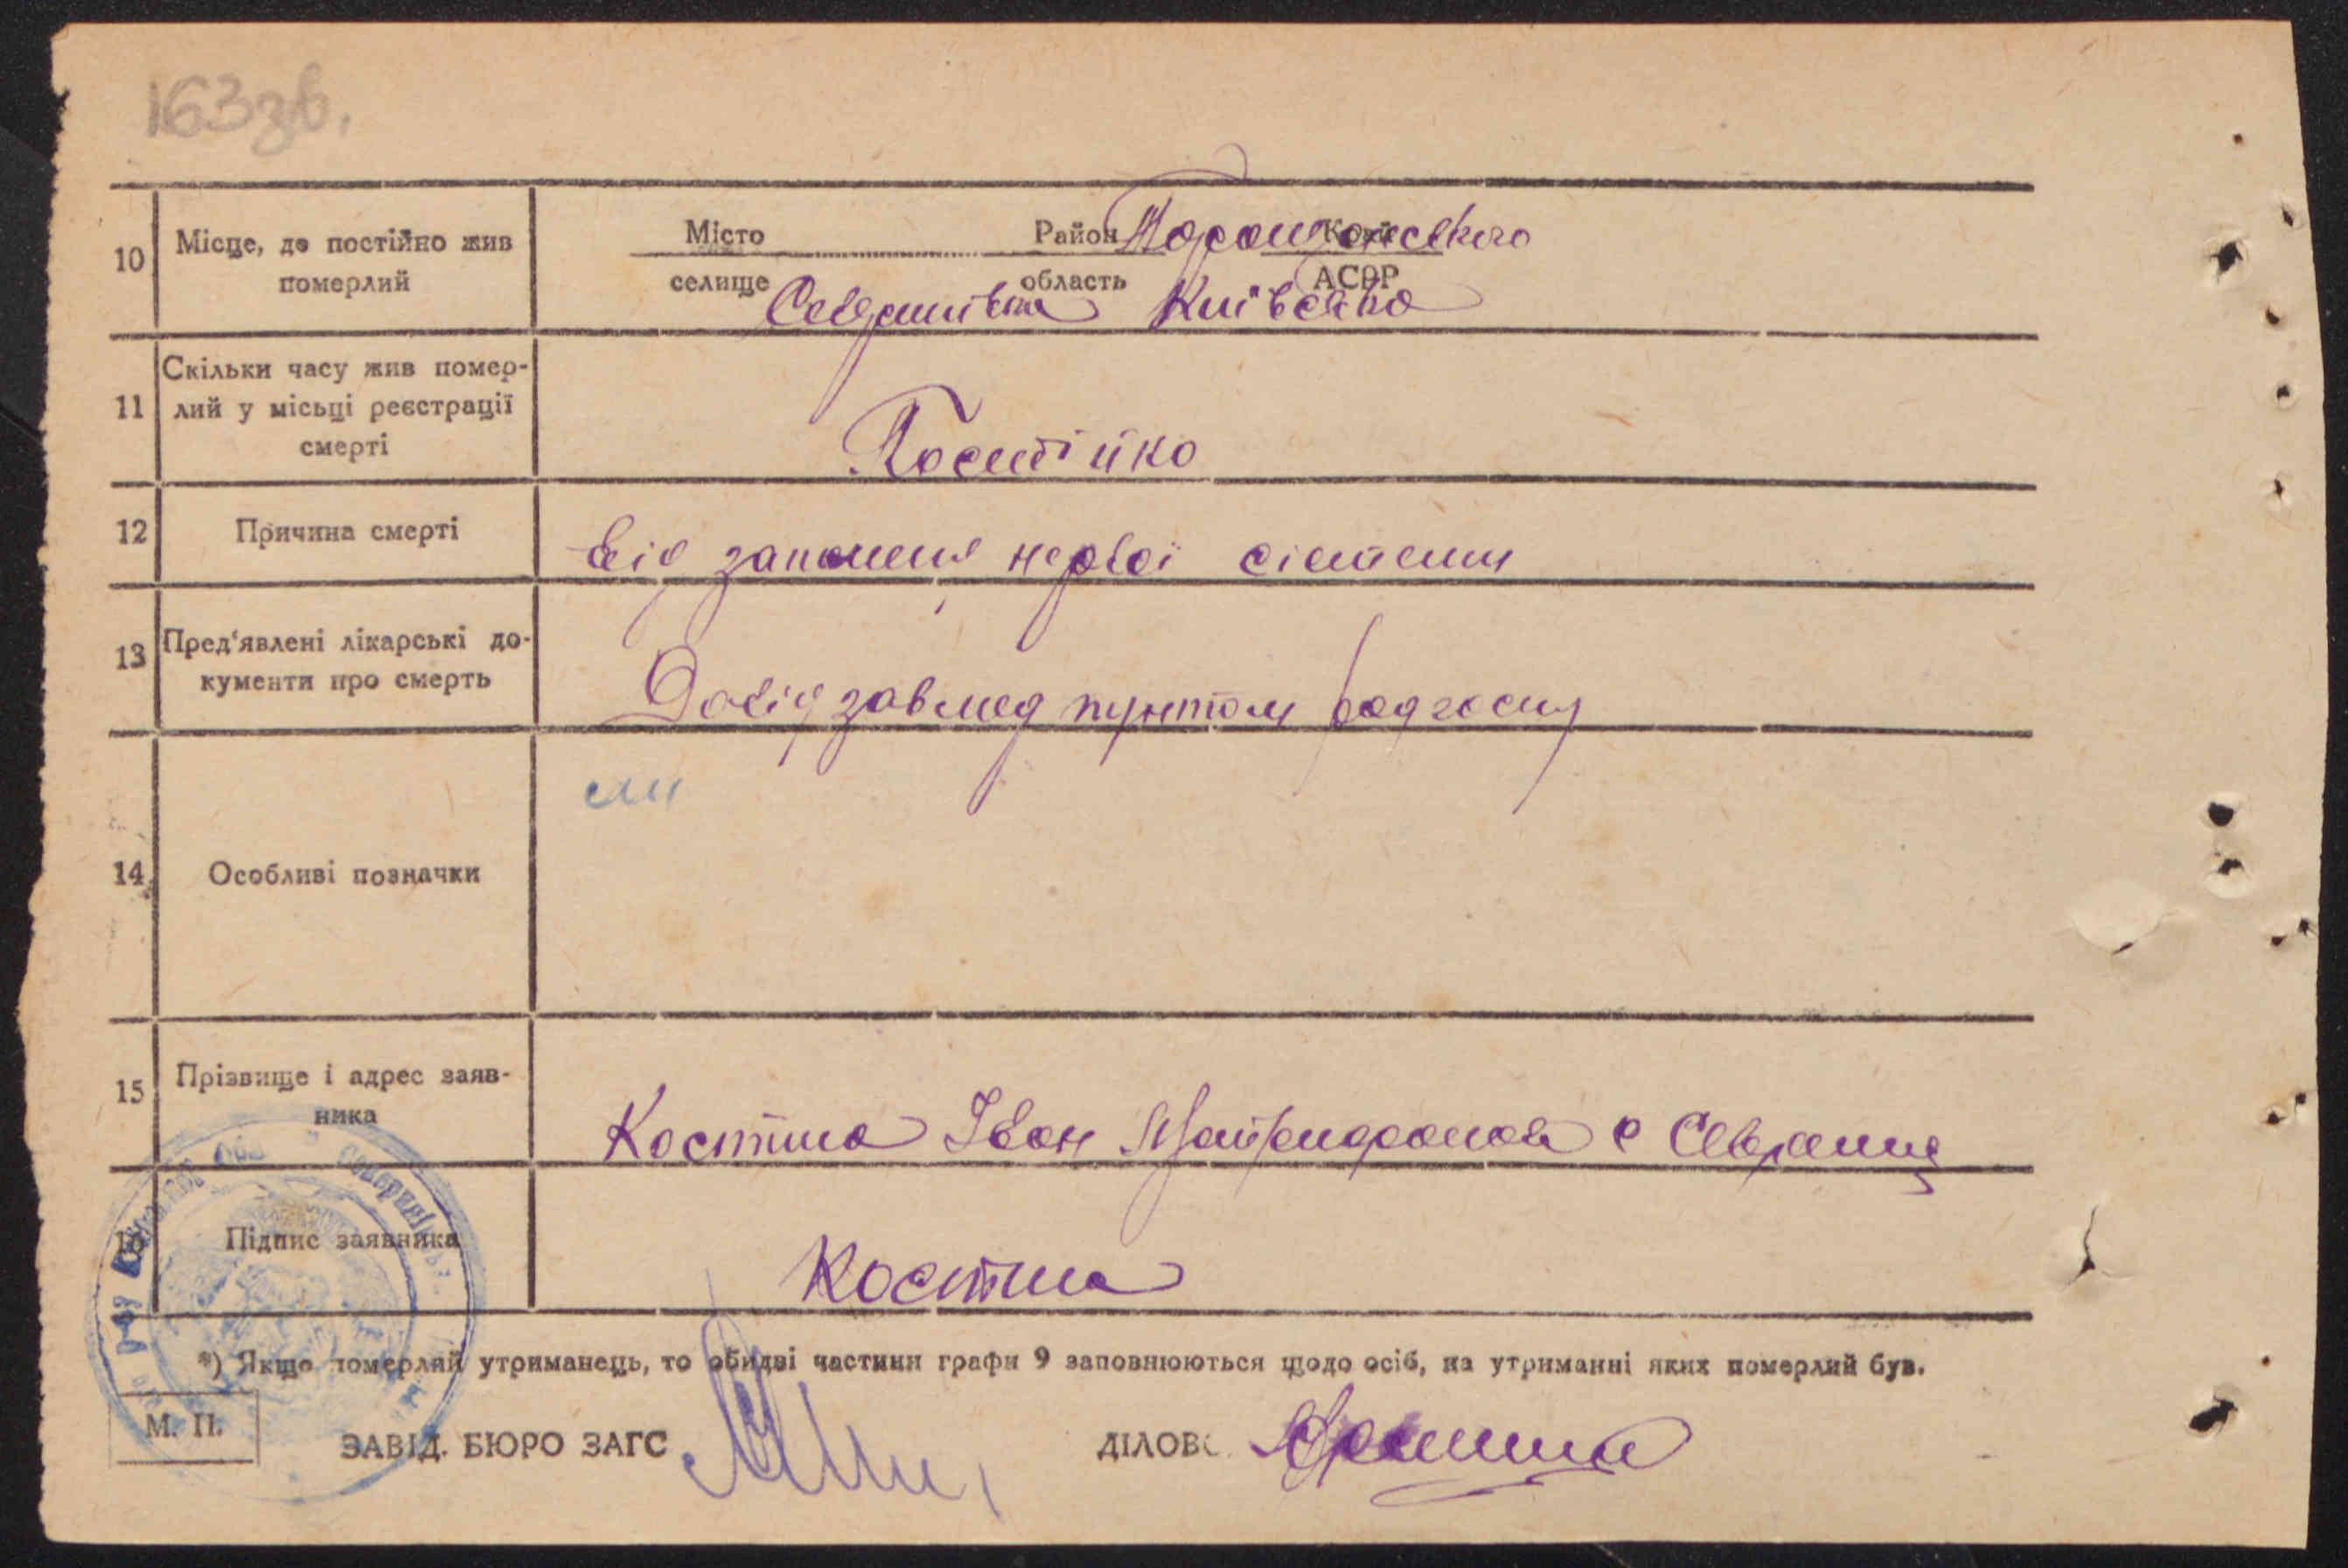 163зв.
Місто Район Край
10 Місце, де постійно жив померлий
селище область АСРР
Київська
11 Скільки часу жив помер-
лий у місьці реєстрації
смерті
Постійно
12 Причина смерті
від запаления нервої сістеми
13 Пред'явлені лікарські до-
кументи про смерть
Довід завмед пунктом радгоспу
14 Особливі позначки
15 Прізвище і адрес заяв-
ника
Костина Іван с
16 Підпис заявника
Костина
*) Якщо померлий утриманець, то обидві частини графи 9 заповнюються щодо осіб, на утриманні яких померлий був.
М. П.
ЗАВІД. БЮРО ЗАГС ДІЛОВ